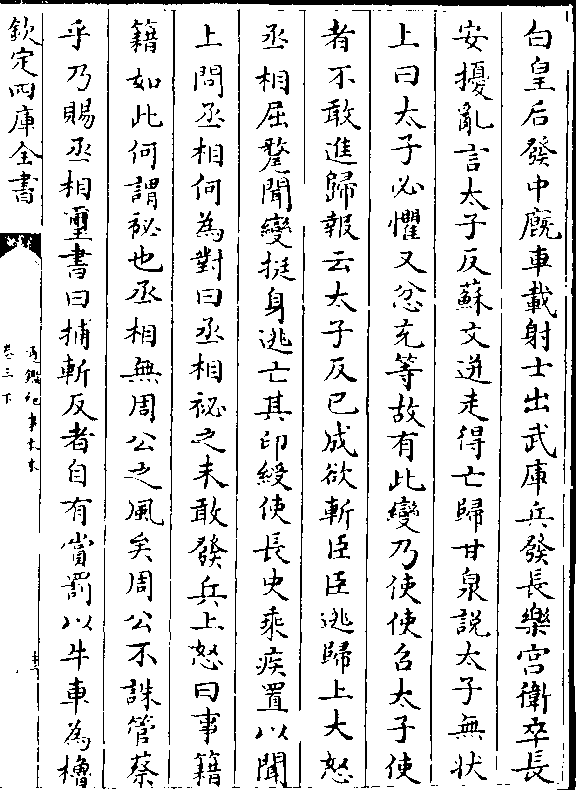 白皇后發中廐車載射士出武庫兵發長樂宫衛卒長
安擾亂言太子反蘇文迸走得亡歸甘泉說太子無狀
上曰太子必懼又忿充等故有此變乃使使召太子使
者不敢進歸報云太子反已成欲斬臣臣逃歸上大怒
丞相屈氂聞變挺身逃亡其印綬使長史乘疾置以聞
上問丞相何為對曰丞相祕之未敢發兵上怒曰事籍
籍如此何謂祕也丞相無周公之風矣周公不誅管蔡
乎乃賜丞相璽書曰捕斬反者自有賞罰以牛車為櫓
欽定四庫全書
通鑑紀事本末
卷三下